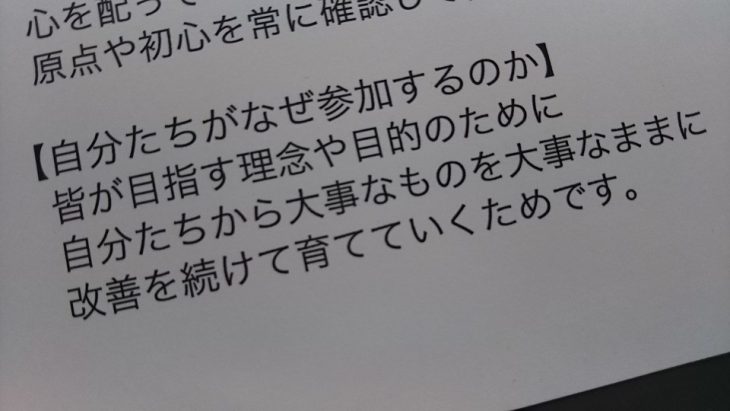 心を配って
原点や初心を常に確認して
【自分たちがなぜ参加するのか】
皆が目指す理念や目的のために
自分たちから大事なものを大事なままに
改善を続けて育てていくためです。